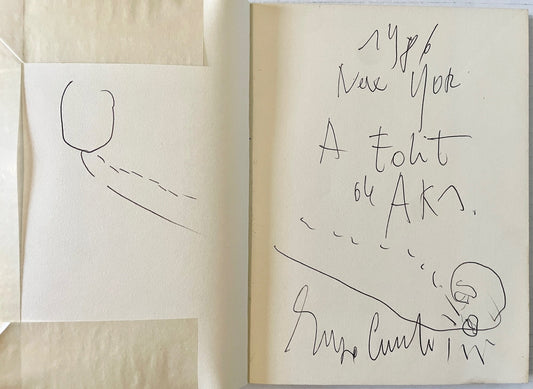 1986
New York
A Edit
de AK.
Enzo Cucchi